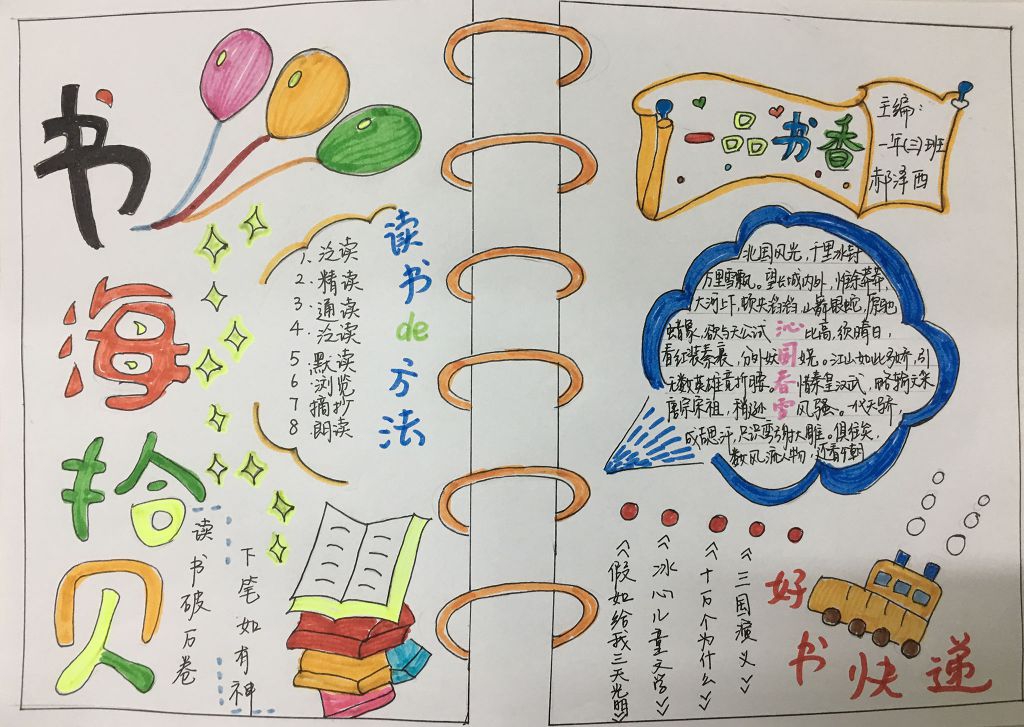 书海拾贝
读书de方法
1、泛读
2、精读
3、通读
4、泛读
5 默读
6 浏览
7 摘抄
8 朗读
读书破万卷
下笔如有神
一品书香
主编：
一年(三)班
郝泽西
沁园春雪
北国风光，千里冰封
万里雪飘。望长城内外，惟余莽莽，
大河上下，顿失滔滔，山舞银蛇，原驰
蜡象，欲与天公试比高，须晴日，
看红装素裹，分外妖娆。江山如此多娇，引
无数英雄竞折腰。惜秦皇汉武，略输文采
唐宗宋祖，稍逊风骚。一代天骄，
成思汗，只识弯弓射大雕。俱往矣，
数风流人物，还看今朝
《三国演义》
《十万个为什么》
《冰心儿童文学》
《假如给我三天光明》
好书快递